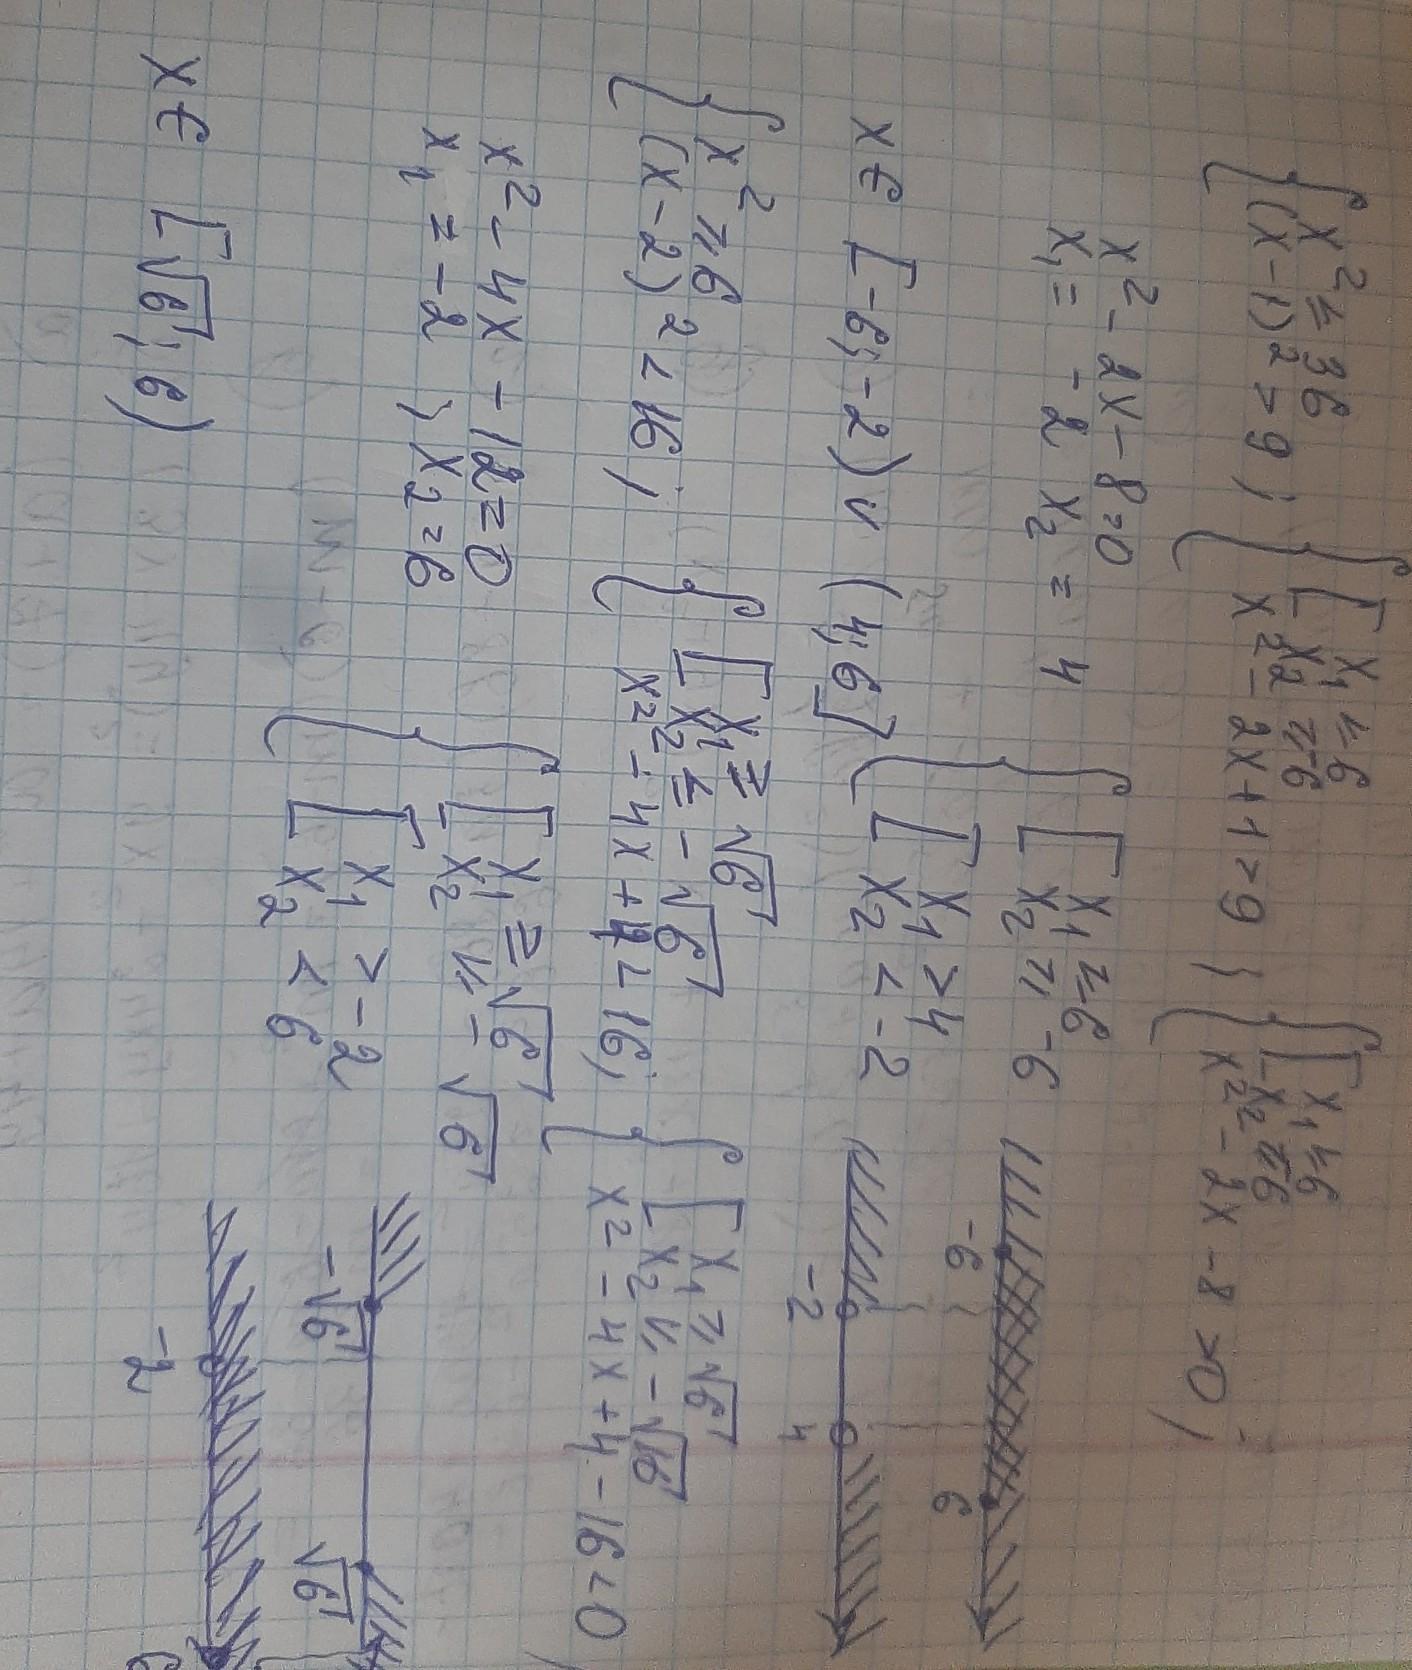 { x² ≤ 36 ; { [ x₁ ≤ 6 } { [ x₁ ≤ 6
(x-1)² > 9 ; x₂ ≥ -6 x₂ ≥ -6
x² - 2x + 1 > 9 } x² - 2x - 8 > 0 ;
x² - 2x - 8 = 0
x₁ = -2 x₂ = 4
{ [ x₁ ≤ 6
x₂ ≥ -6
[ x₁ > 4
x₂ < -2
-6 6
-2 4
x ∈ [-6; -2) ∪ (4; 6]
{ x² ≥ 6 { [ x₁ ≥ √6 { [ x₁ ≥ √6
(x-2)² < 16 ; x₂ ≤ -√6 x₂ ≤ -√6
x² - 4x + 4 < 16 ; x² - 4x + 4 - 16 < 0
x² - 4x - 12 = 0
x₁ = -2 , x₂ = 6
{ [ x₁ ≥ √6
x₂ ≤ -√6
[ x₁ > -2
x₂ < 6
-√6 √6
-2
x ∈ [√6; 6)